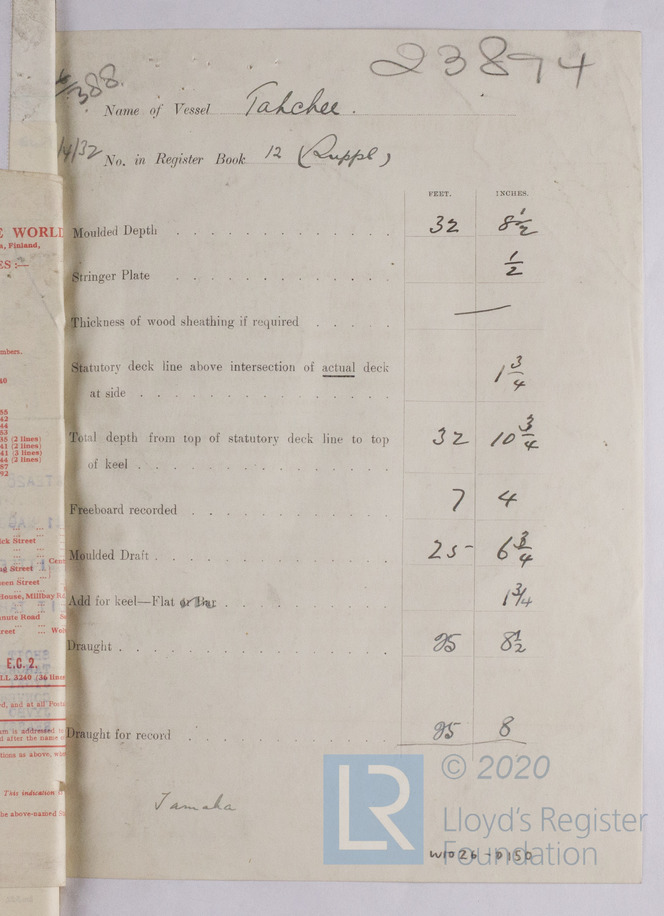 23894
388
Name of Vessel Tahchee.
4/32
No. in Register Book 12 (Suppl)
FEET. INCHES.
Moulded Depth 32 8½
Stringer Plate ½
Thickness of wood sheathing if required —
Statutory deck line above intersection of actual deck
at side 1¾
Total depth from top of statutory deck line to top
of keel 32 10¾
Freeboard recorded 7 4
Moulded Draft 25 6¾
Add for keel—Flat or Bar 1¾
Draught 25 8½
Draught for record 25 8
Tamaha
© 2020
LR
Lloyd's Register
Foundation
W1026-0150
E WORLD
a, Finland,
ES :—
mbers.
40
55
42
44
53
35 (2 lines)
41 (2 lines)
41 (3 lines)
44 (2 lines)
87
92
ick Street
ng Street
ueen Street
House, Millbay Rd
nute Road
reet
E.C. 2.
LL 3240 (36 lines
ed, and at all Posta
am is addressed
d after the name
tions as above, wi
This indication
he above-named S